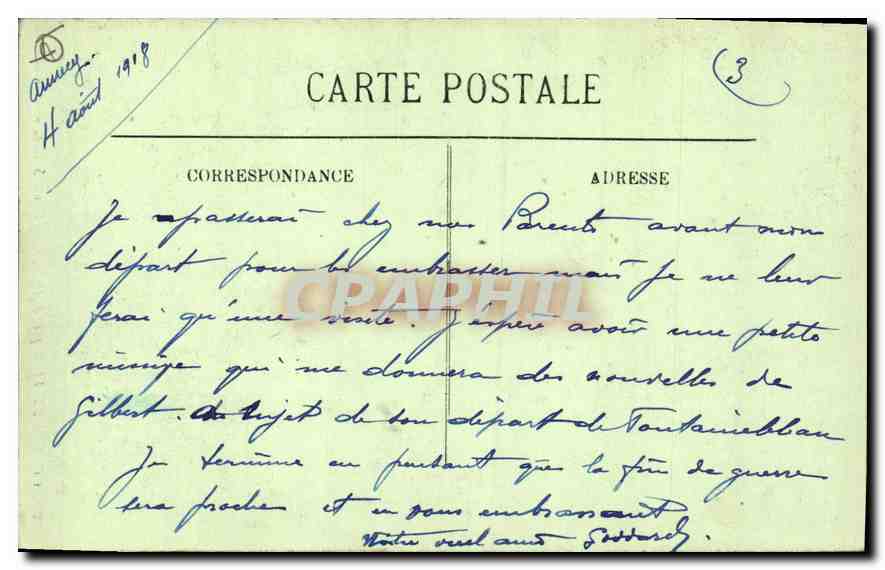 A
Annecy.
4 août 1918
3
CARTE POSTALE
CORRESPONDANCE
ADRESSE
Je passerai chez mes Parents avant mon
départ pour les embrasser mais je ne leur
ferai qu'une visite. J'espère avoir une petite
missive qui me donnera des nouvelles de
Gilbert. Au sujet de son départ de Fontainebleau
Je termine en pensant que la fin de guerre
sera proche et en vous embrassant
Votre ami
CPAPHIL